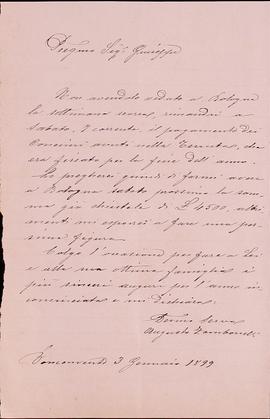 Pregmo Sigr Giuseppe
Non avendolo veduto a Bologna
la settimana scorsa, rimandai a
Sabato, 7 corrente, il pagamento dei
Concimi avuti nella Tenuta, che
era fissato per la fine dell'anno.
La pregherei quindi di farmi avere
a Bologna sabato prossimo la som-
ma già chiestale di £ 4500, altri-
menti mi esporrei a fare una pes-
sima figura.
Colgo l'occasione per fare a Lei
e alla sua ottima famiglia i
più sinceri auguri per l'anno in
cominciato e mi dichiaro
Devmo Servo
Augusto
3 Gennaio 1899